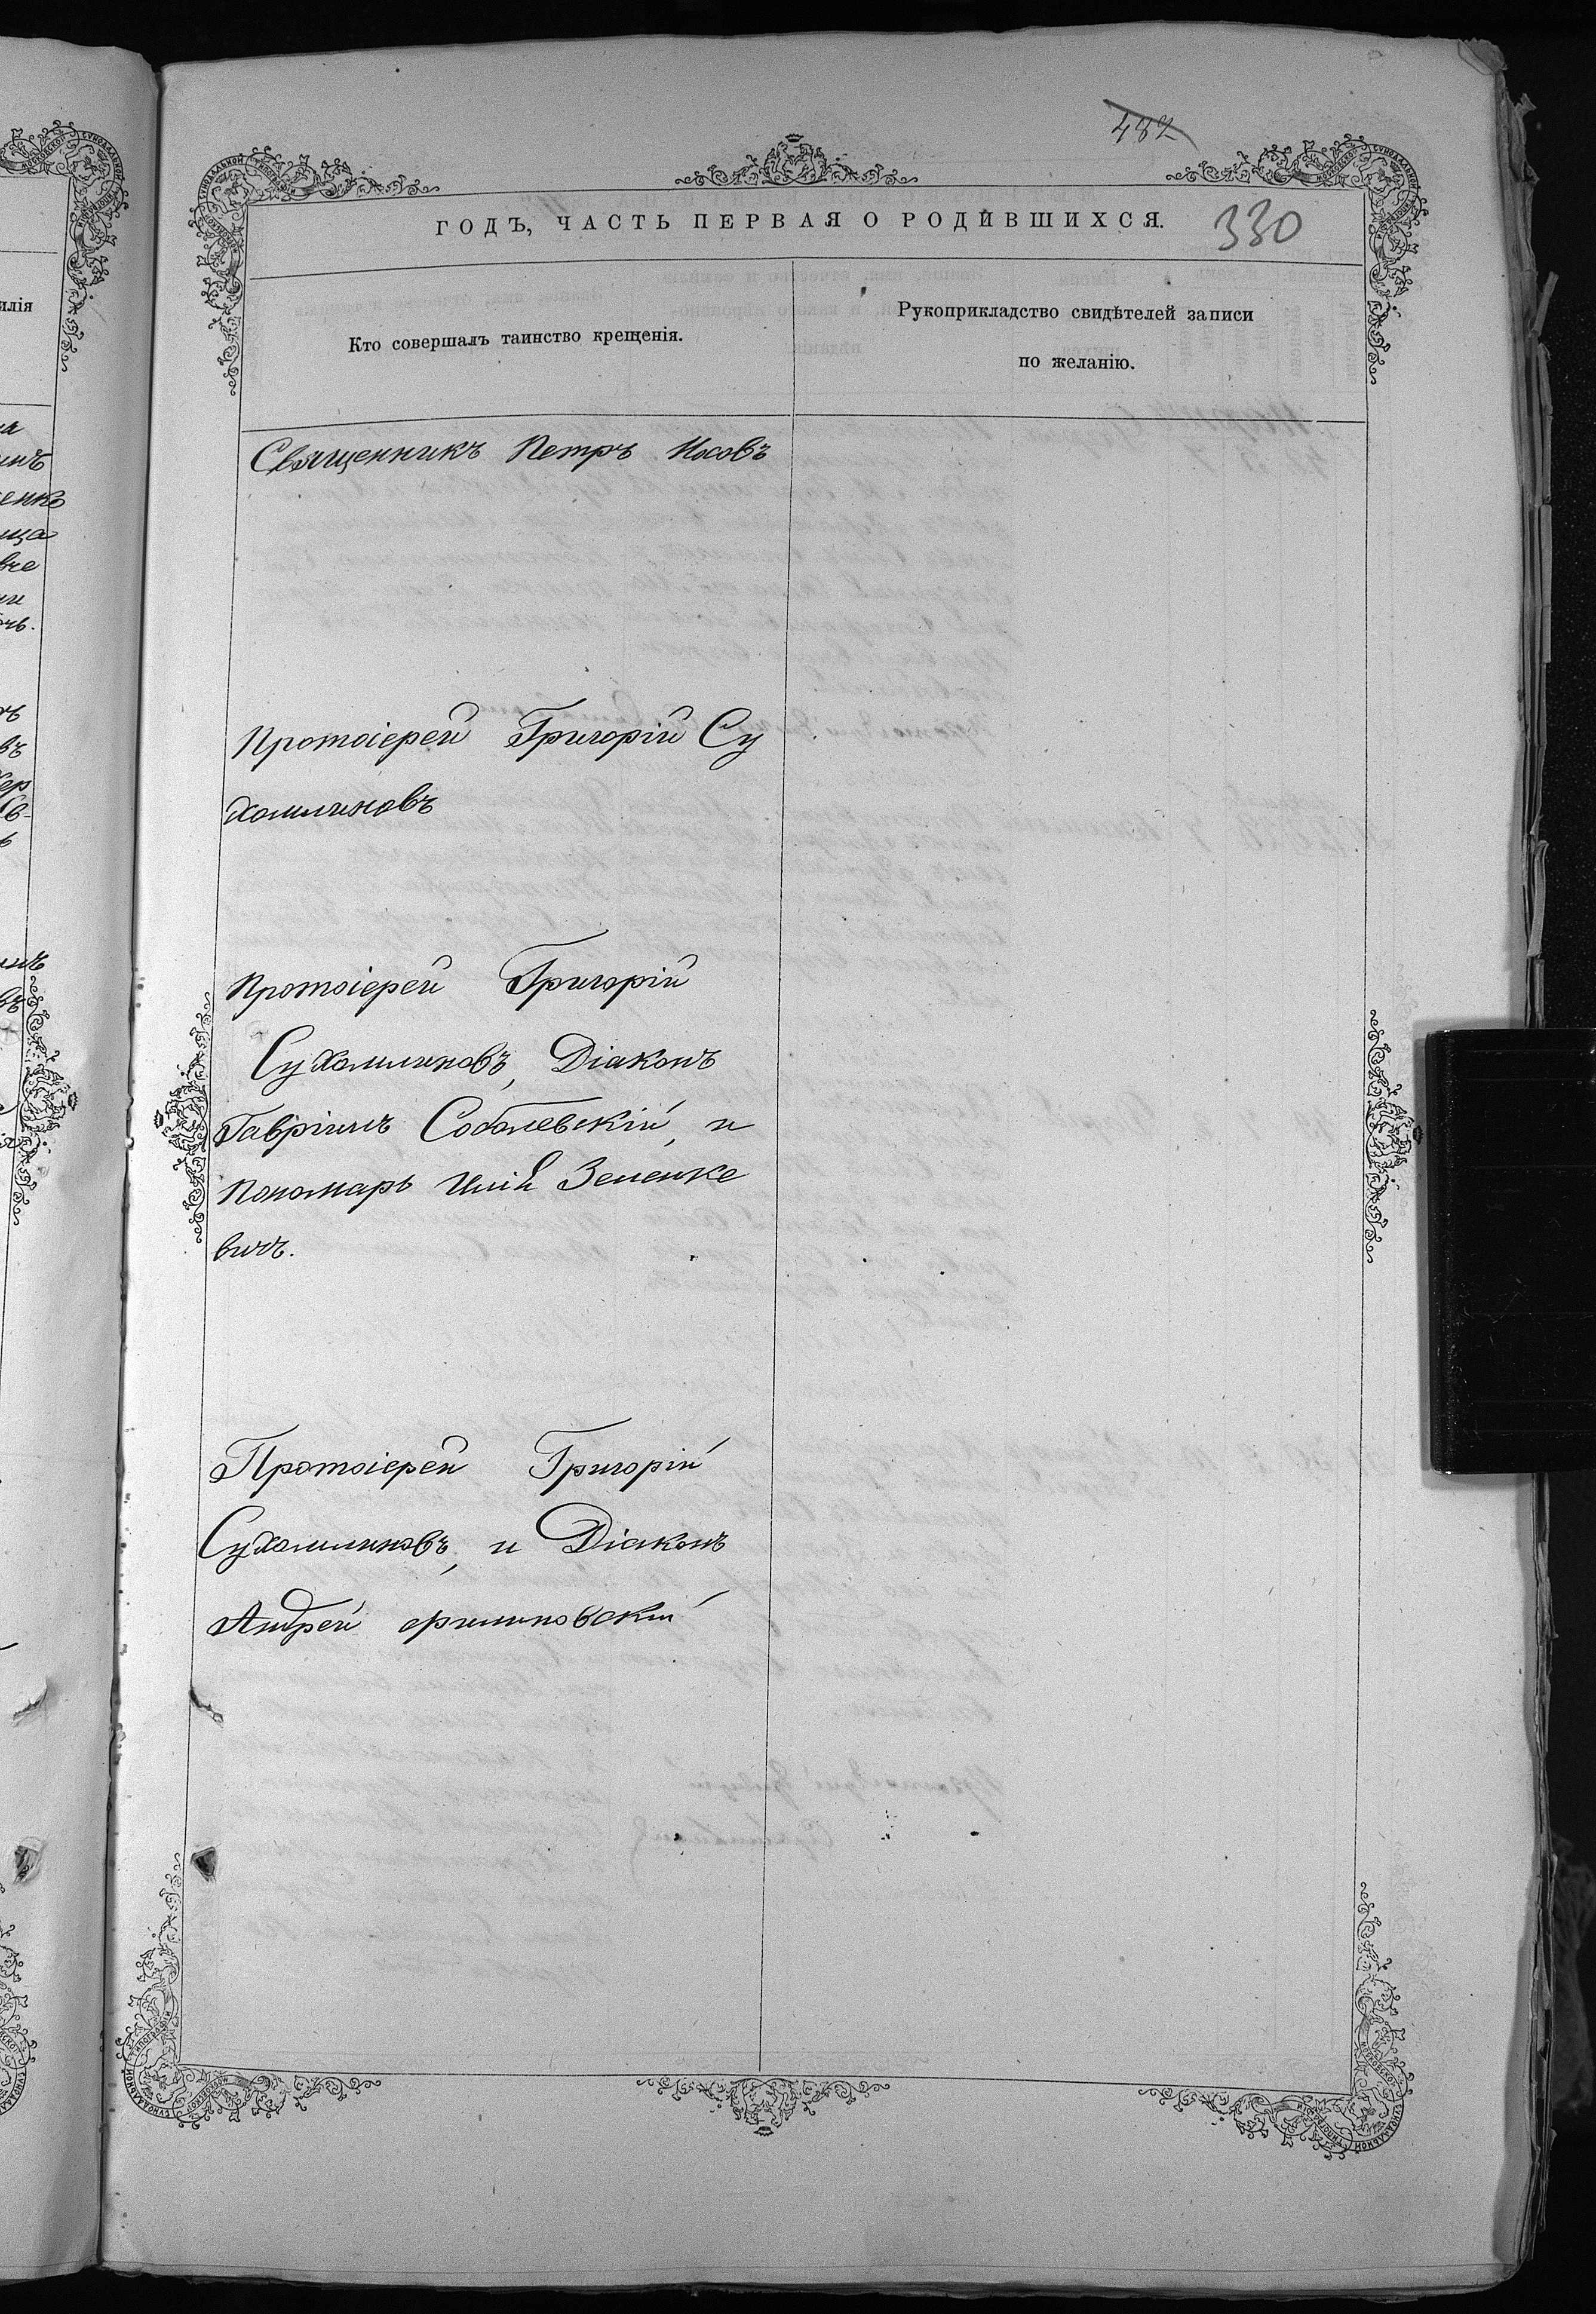 482
ГОДЪ, ЧАСТЬ ПЕРВАЯ О РОДИВШИХСЯ.
330
Кто совершалъ таинство крещенія.
Рукоприкладство свидѣтелей записи
по желанію.
Священникъ Петръ Носовъ
Протоіерей Григорій Су
хомлиновъ
Протоіерей Григорій
Сухомлиновъ, Діаконъ
Гавріилъ Соболевскій, и
Пономарь Илія Зеленке
вичъ.
Протоіерей Григорій
Сухомлиновъ, и Діаконъ
Андрей
илія